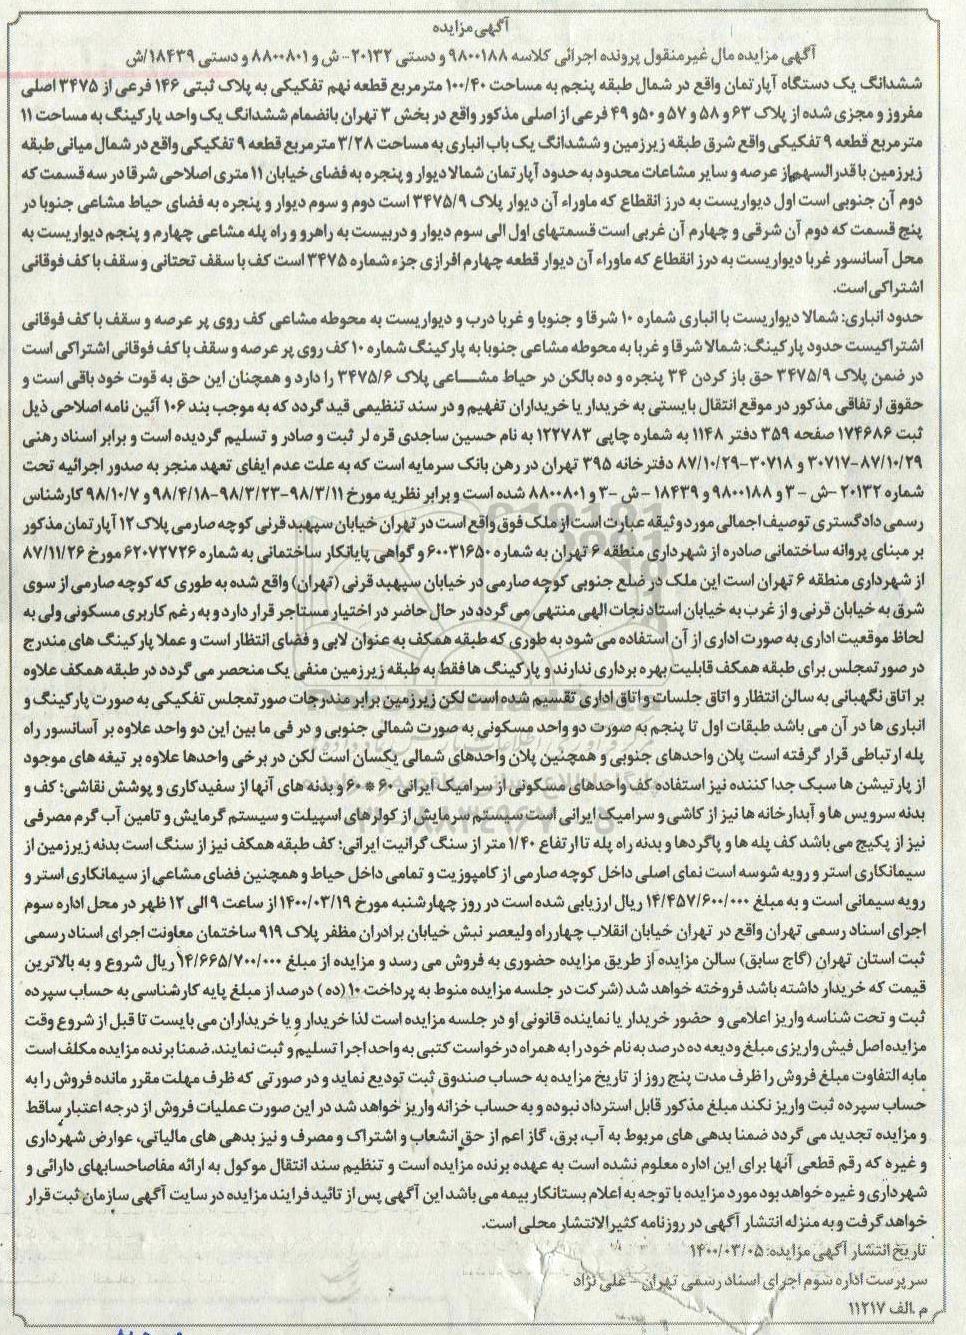 آگهی مزایده
آگهی مزایده مال غیرمنقول پرونده اجرائی کلاسه ۹۸۰۰۱۸۸ و دستی ۲۰۱۳۲-ش و ۸۸۰۰۸۰۱ و دستی ۱۸۴۳۹/ش
ششدانگ یک دستگاه آپارتمان واقع در شمال طبقه پنجم به مساحت ۱۰۰/۴۰ مترمربع قطعه نهم تفکیکی به پلاک ثبتی ۱۴۶ فرعی از ۳۴۷۵ اصلی
مفروز و مجزی شده از پلاک ۶۳ و ۵۸ و ۵۷ و ۵۰و ۴۹ فرعی از اصلی مذکور واقع در بخش ۳ تهران بانضمام ششدانگ یک واحد پارکینگ به مساحت ۱۱
مترمربع قطعه ۹ تفکیکی واقع شرق طبقه زیرزمین و ششدانگ یک باب انباری به مساحت ۳/۲۸ مترمربع قطعه ۹ تفکیکی واقع در شمال میانی طبقه
زیرزمین با قدرالسهم از عرصه و سایر مشاعات محدود به حدود آپارتمان شمالا دیوار و پنجره به فضای خیابان ۱۱ متری اصلاحی شرقا در سه قسمت که
دوم آن جنوبی است اول دیواریست به درز انقطاع که ماوراء آن دیوار پلاک ۳۴۷۵/۹ است دوم و سوم دیوار و پنجره به فضای حیاط مشاعی جنوبا در
پنج قسمت که دوم آن شرقی و چهارم آن غربی است قسمتهای اول الی سوم دیوار و دربیست به راهرو و راه پله مشاعی چهارم و پنجم دیواریست به
محل آسانسور غربا دیواریست به درز انقطاع که ماوراء آن دیوار قطعه چهارم افرازی جزء شماره ۳۴۷۵ است کف با سقف تحتانی و سقف با کف فوقانی
اشتراکی است.
حدود انباری: شمالا دیواریست با انباری شماره ۱۰ شرقا و جنوبا و غربا درب و دیواریست به محوطه مشاعی کف روی پر عرصه و سقف با کف فوقانی
اشتراکیست حدود پارکینگ: شمالا شرقا و غربا به محوطه مشاعی جنوبا به پارکینگ شماره ۱۰ کف روی پر عرصه و سقف با کف فوقانی اشتراکی است
در ضمن پلاک ۳۴۷۵/۹ حق باز کردن ۳۴ پنجره و ده بالکن در حیاط مشـــاعی پلاک ۳۴۷۵/۶ را دارد و همچنان این حق به قوت خود باقی است و
حقوق ارتفاقی مذکور در موقع انتقال بایستی به خریدار یا خریداران تفهیم و در سند تنظیمی قید گردد که به موجب بند ۱۰۶ آئین نامه اصلاحی ذیل
ثبت ۱۷۴۶۸۶ صفحه ۳۵۹ دفتر ۱۱۴۸ به شماره چاپی ۱۲۲۷۸۳ به نام حسین ساجدی قره لر ثبت و صادر و تسلیم گردیده است و برابر اسناد رهنی
۳۰۷۱۷-۸۷/۱۰/۲۹ و ۳۰۷۱۸-۸۷/۱۰/۲۹ دفترخانه ۳۹۵ تهران در رهن بانک سرمایه است که به علت عدم ایفای تعهد منجر به صدور اجرائیه تحت
شماره ۲۰۱۳۲ -ش - ۳ و ۹۸۰۰۱۸۸ و ۱۸۴۳۹ -ش -۳ و ۸۸۰۰۸۰۱ شده است و برابر نظریه مورخ ۹۸/۳/۱۱-۹۸/۳/۲۳-۹۸/۴/۱۸ و ۹۸/۱۰/۷ کارشناس
رسمی دادگستری توصیف اجمالی مورد وثیقه عبارت است از ملک فوق واقع است در تهران خیابان سپهبد قرنی کوچه صارمی پلاک ۱۲ آپارتمان مذکور
بر مبنای پروانه ساختمانی صادره از شهرداری منطقه ۶ تهران به شماره ۶۰۰۳۱۶۵۰ و گواهی پایانکار ساختمانی به شماره ۶۲۰۷۲۷۲۶ مورخ ۸۷/۱۱/۲۶
از شهرداری منطقه ۶ تهران است این ملک در ضلع جنوبی کوچه صارمی در خیابان سپهبد قرنی (تهران) واقع شده به طوری که کوچه صارمی از سوی
شرق به خیابان قرنی و از غرب به خیابان استاد نجات الهی منتهی می گردد در حال حاضر در اختیار مستاجر قرار دارد و به رغم کاربری مسکونی ولی به
لحاظ موقعیت اداری به صورت اداری از آن استفاده می شود به طوری که طبقه همکف به عنوان لابی و فضای انتظار است و عملا پارکینگ های مندرج
در صورتمجلس برای طبقه همکف قابلیت بهره برداری ندارند و پارکینگ ها فقط به طبقه زیرزمین منفی یک منحصر می گردد در طبقه همکف علاوه
بر اتاق نگهبانی به سالن انتظار و اتاق جلسات و اتاق اداری تقسیم شده است لکن زیرزمین برابر مندرجات صورتمجلس تفکیکی به صورت پارکینگ و
انباری ها در آن می باشد طبقات اول تا پنجم به صورت دو واحد مسکونی به صورت شمالی جنوبی و در فی ما بین این دو واحد علاوه بر آسانسور راه
پله ارتباطی قرار گرفته است پلان واحدهای جنوبی و همچنین پلان واحدهای شمالی یکسان است لکن در برخی واحدها علاوه بر تیغه های موجود
از پارتیشن ها سبک جدا کننده نیز استفاده کف واحدهای مسکونی از سرامیک ایرانی ۶۰*۶۰ و بدنه های آنها از سفیدکاری و پوشش نقاشی؛ کف و
بدنه سرویس ها و آبدارخانه ها نیز از کاشی و سرامیک ایرانی است سیستم سرمایش از کولرهای اسپیلت و سیستم گرمایش و تامین آب گرم مصرفی
نیز از پکیج می باشد کف پله ها و پاگردها و بدنه راه پله تا ارتفاع ۱/۴۰ متر از سنگ گرانیت ایرانی؛ کف طبقه همکف نیز از سنگ است بدنه زیرزمین از
سیمانکاری استر و رویه شوسه است نمای اصلی داخل کوچه صارمی از کامپوزیت و تمامی داخل حیاط و همچنین فضای مشاعی از سیمانکاری استر و
رویه سیمانی است و به مبلغ ۱۴/۴۵۷/۶۰۰/۰۰۰ ریال ارزیابی شده است در روز چهارشنبه مورخ ۱۴۰۰/۰۳/۱۹ از ساعت ۹ الی ۱۲ ظهر در محل اداره سوم
اجرای اسناد رسمی تهران واقع در تهران خیابان انقلاب چهارراه ولیعصر نبش خیابان برادران مظفر پلاک ۹۱۹ ساختمان معاونت اجرای اسناد رسمی
ثبت استان تهران (گاج سابق) سالن مزایده از طریق مزایده حضوری به فروش می رسد و مزایده از مبلغ ۱۴/۶۶۵/۷۰۰/۰۰۰ ریال شروع و به بالاترین
قیمت که خریدار داشته باشد فروخته خواهد شد (شرکت در جلسه مزایده منوط به پرداخت ۱۰ (ده ) درصد از مبلغ پایه کارشناسی به حساب سپرده
ثبت و تحت شناسه واریز اعلامی و حضور خریدار یا نماینده قانونی او در جلسه مزایده است لذا خریدار و یا خریداران می بایست تا قبل از شروع وقت
مزایده اصل فیش واریزی مبلغ ودیعه ده درصد به نام خود را به همراه درخواست کتبی به واحد اجرا تسلیم و ثبت نمایند. ضمنا برنده مزایده مکلف است
مابه التفاوت مبلغ فروش را ظرف مدت پنج روز از تاریخ مزایده به حساب صندوق ثبت تودیع نماید و در صورتی که ظرف مهلت مقرر مانده فروش را به
حساب سپرده ثبت واریز نکند مبلغ مذکور قابل استرداد نبوده و به حساب خزانه واریز خواهد شد در این صورت عملیات فروش از درجه اعتبار ساقط
و مزایده تجدید می گردد ضمنا بدهی های مربوط به آب، برق، گاز اعم از حق انشعاب و اشتراک و مصرف و نیز بدهی های مالیاتی، عوارض شهرداری
و غیره که رقم قطعی آنها برای این اداره معلوم نشده است به عهده برنده مزایده است و تنظیم سند انتقال موکول به ارائه مفاصاحسابهای دارائی و
شهرداری و غیره خواهد بود مورد مزایده با توجه به اعلام بستانکار بیمه می باشد این آگهی پس از تائید فرایند مزایده در سایت آگهی سازمان ثبت قرار
خواهد گرفت و به منزله انتشار آگهی در روزنامه کثیرالانتشار محلی است.
تاریخ انتشار آگهی مزایده: ۱۴۰۰/۰۳/۰۵
سرپرست اداره سوم اجرای اسناد رسمی تهران - علی نژاد
م .الف ۱۱۲۱۷